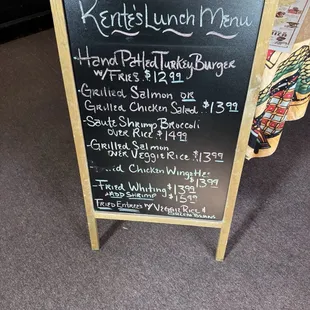 Kente's Lunch Menu
Hand Patted Turkey Burger
w/Fries $12.99
Grilled Salmon OR
Grilled Chicken Salad $13.99
Saute Shrimp Broccoli
over Rice $14.99
Grilled Salmon
over Veggie Rice $13.99
Chicken Wing
$13.99
Fried Whiting $13.99
ADD Shrimp $15.99
Fried Entree's w/Veggie Rice &